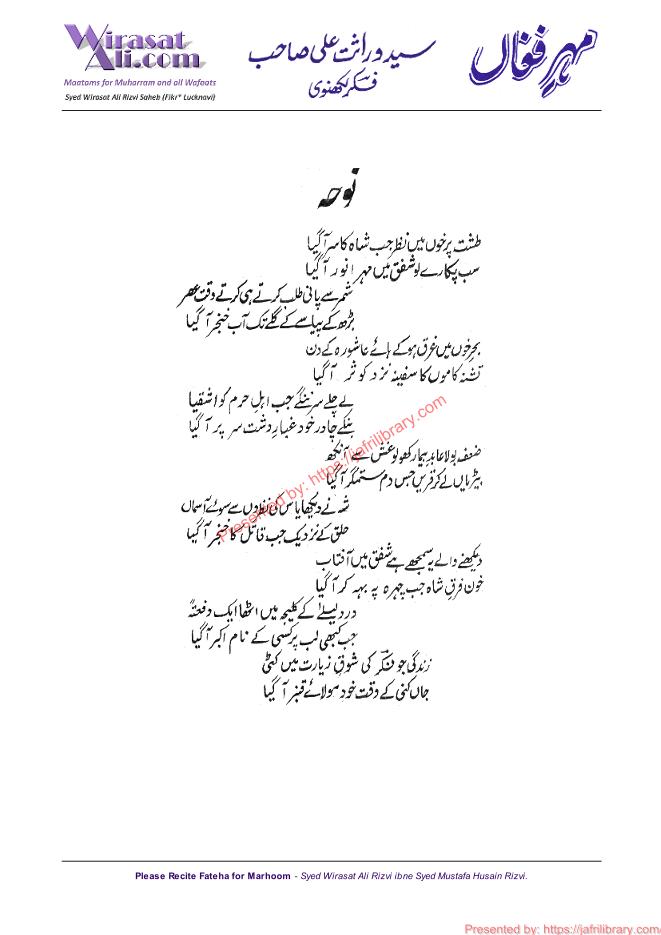 Wirasat
Ali.com
Maatams for Muharram and all Wafaats
Syed Wirasat Ali Rizvi Saheb (Fikr* Lucknavi)
سید وراثت علی صاحب
فکر لکھنوی
مہرِ فغاں
نوحہ
طشت پرخوں میں نظر جب شاہ کا سر آگیا
سب پکارے لو شفق میں مہر انور آگیا
شمر سے پانی طلب کرتے ہی کرتے وقت عصر
بڑھ کے پیاسے کے گلے تک آب خنجر آگیا
بحرخوں میں غرق ہو کے ہائے عاشورہ کے دن
تشنہ کاموں کا سفینہ نزد کوثر آگیا
لے چلے سر ننگے جب اہل حرم کو اشقیا
بنکے چادر خود غبار دشت سر پر آگیا
ضعف بولا عابد بیمار کھولو غش سے آنکھ
بیڑیاں لے کر قریں جس دم ستمگر آگیا
شہ نے دیکھا یاس کی نظروں سے سوئے آسماں
حلق کے نزدیک جب قاتل کا خنجر آگیا
دیکھنے والے یہ سمجھے ہے شفق میں آفتاب
خون فرق شاہ جب چہرہ پہ بہہ کر آگیا
درد لیلیٰ کے کلیجہ میں اٹھا ایک دفعتہً
جب کبھی لب پر کسی کے نام اکبر آگیا
زندگی جو فکر کی شوق زیارت میں کٹی
جاں کنی کے وقت خود مولائے قنبر آگیا
Presented by: https://jafrilibrary.com
Please Recite Fateha for Marhoom - Syed Wirasat Ali Rizvi ibne Syed Mustafa Husain Rizvi.
Presented by: https://jafrilibrary.com/